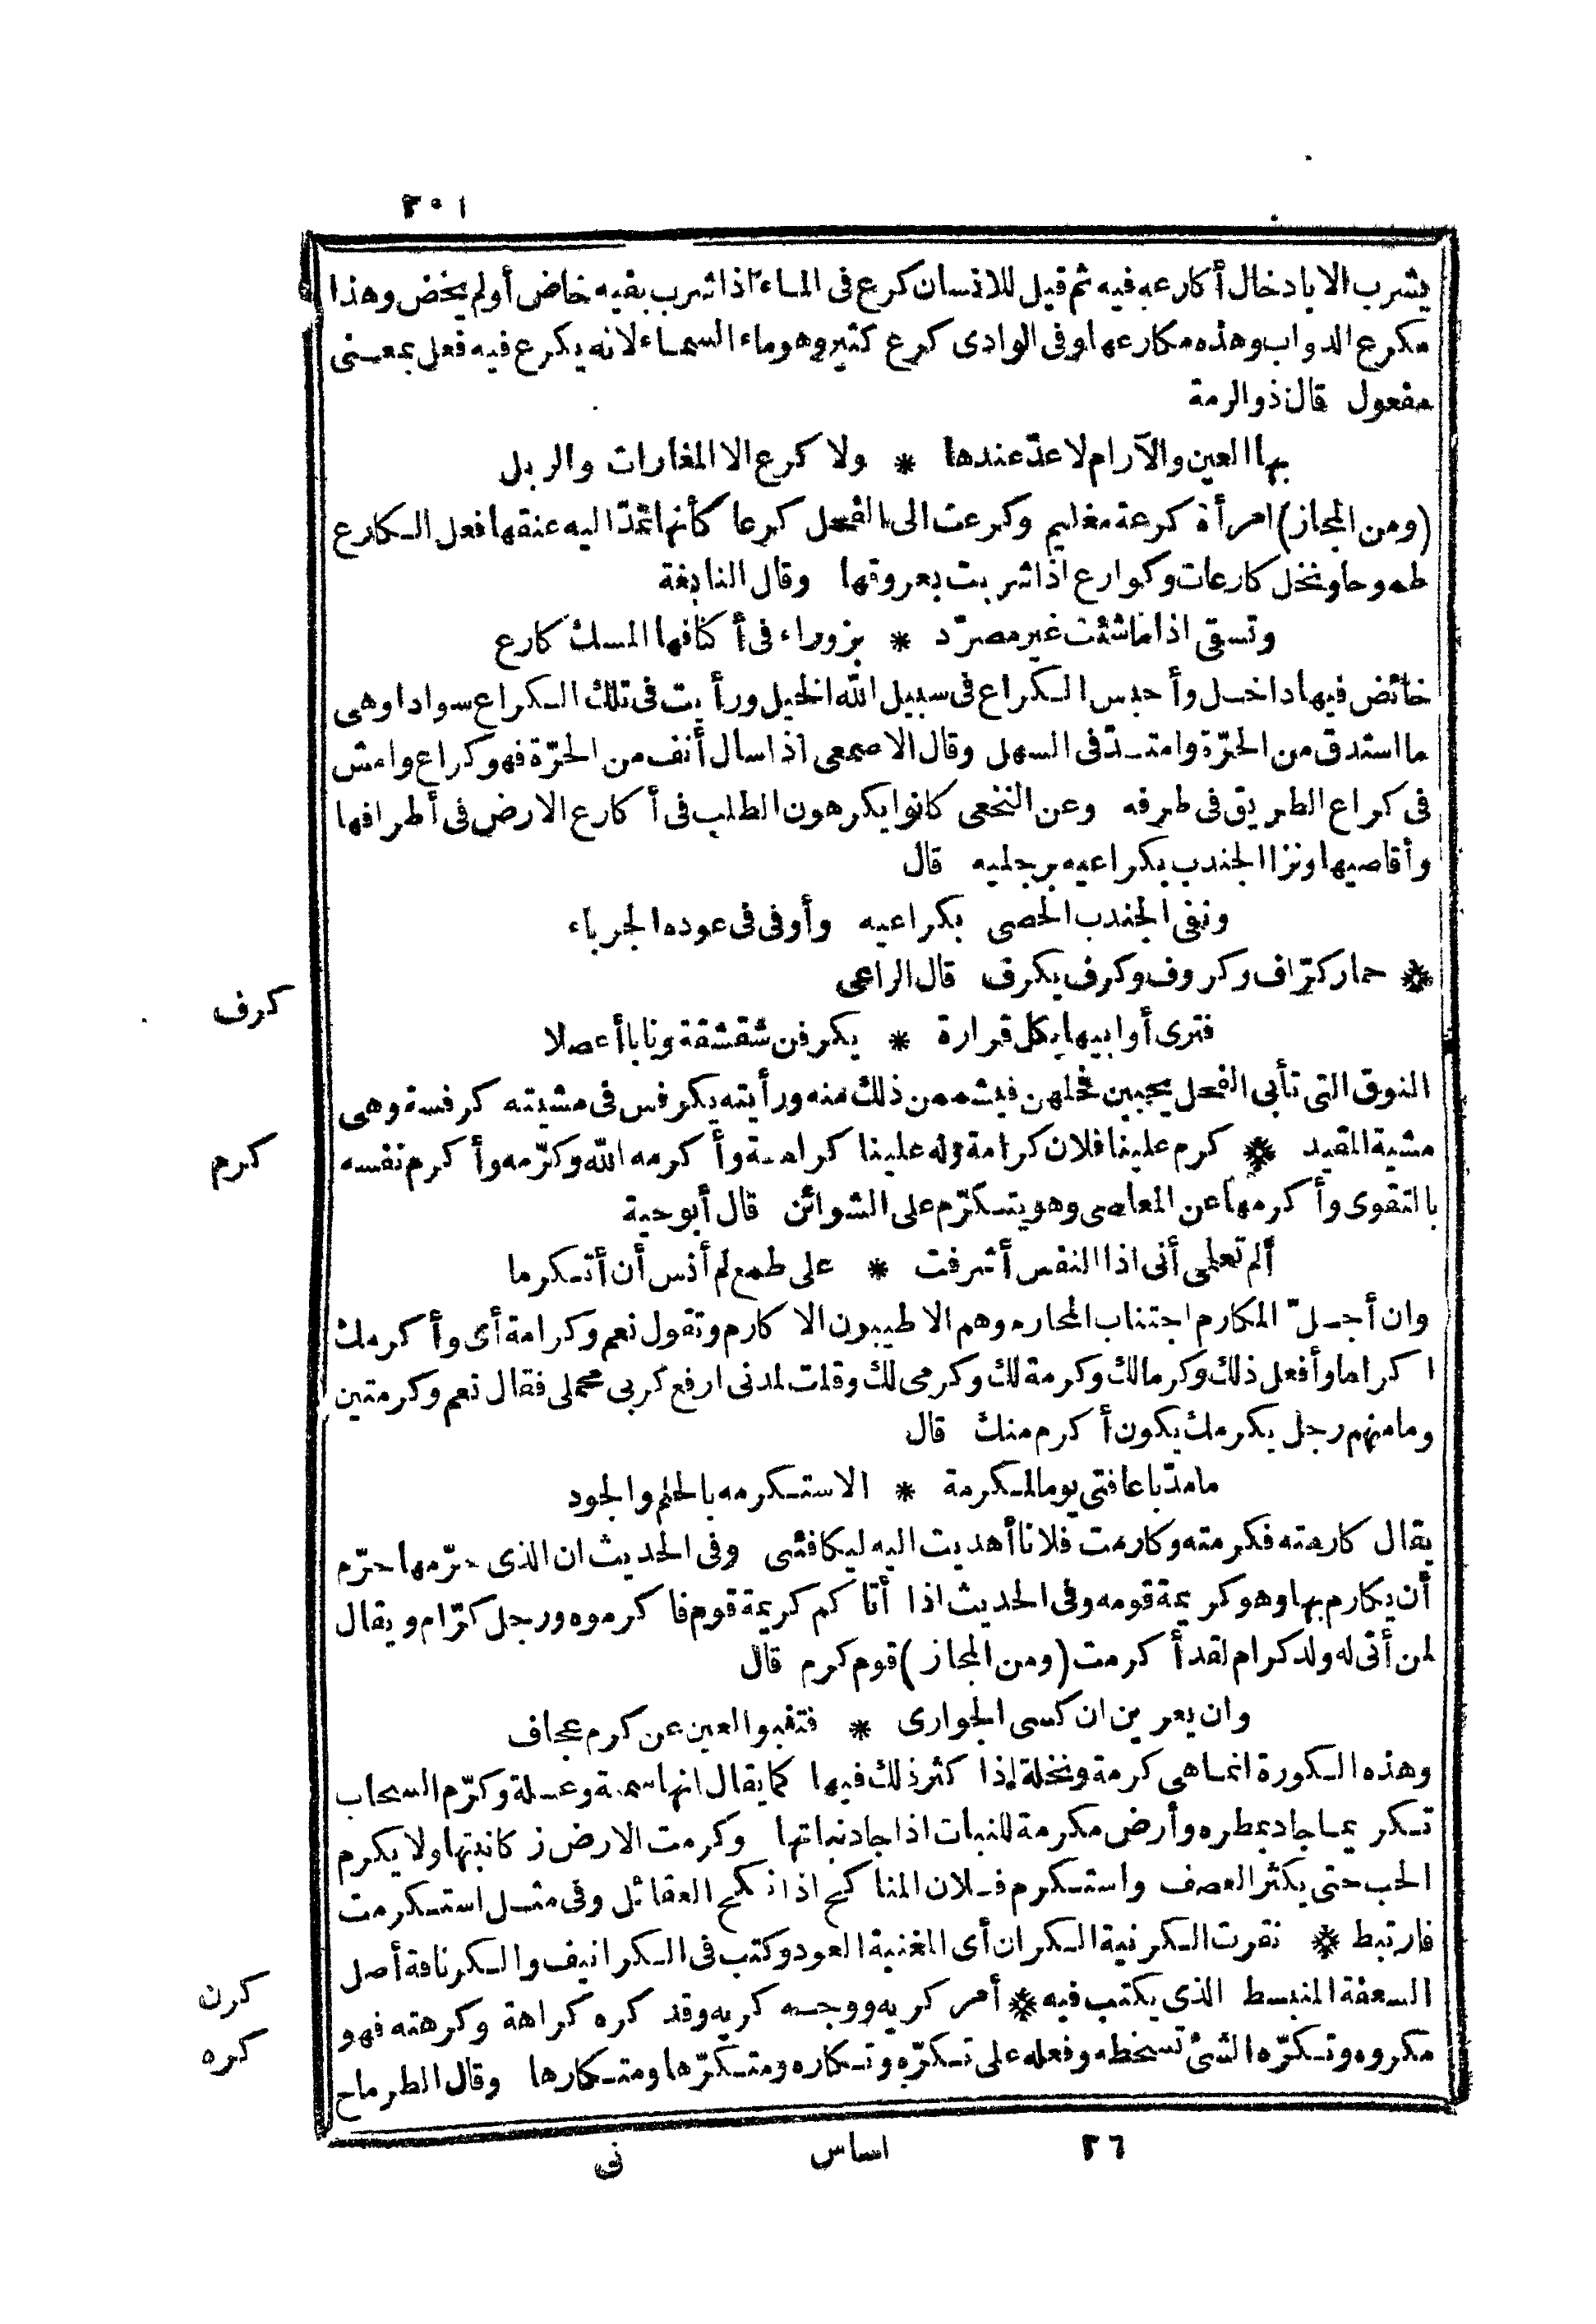 ٢٠١
يشرب الا بادخال أكارعه فيه ثم قيل للانسان كرع فى الماء اذا شرب بفيه خاض أولم يخض وهذا
مكرع الدواب وهذه مكارعها وفى الوادى كرع كثير وهو ماء السماء لانه يكرع فيه فعل بمعنى
مفعول قال ذو الرمة
بها العين والآرام لا عدّ عندها * ولا كرع الا المغارات والربل
(ومن المجاز) امرأة كرعة مغليم وكرعت الى الفحل كرعا كأنها تمدّ اليه عنقها فعل الكارع
طموحا ونخل كارعات وكوارع اذا شربت بعروقها وقال النابغة
وتسقى اذا ما شئت غير مصرّد * بزوراء فى أكنافها المسك كارع
خائض فيها داخل وأحبس الكراع فى سبيل الله الخيل ورأيت فى تلك الكراع سوادا وهى
ما استدق من الحرّة وامتدّ فى السهل وقال الاصمعى اذا سال أنف من الحرّة فهو كراع وامش
فى كراع الطريق فى طرفه وعن النخعى كانوا يكرهون الطلب فى أكارع الارض فى أطرافها
وأقاصيها ونزا الجندب بكراعيه برجليه قال
ونفى الجندب الحصى بكراعيه وأوفى فى عوده الحرباء
كرف
* حمار كرّاف وكروف وكرف يكرف قال الراعى
فترى أوابيها بكل قرارة * يكرفن شقشقة ونابا أعصلا
النوق التى تأبى الفحل يجبين فحلهن فيشممن ذلك منه ورأيته يكرفس فى مشيته كرفسة وهى
كرم
مشية المقيد * كرم علينا فلان كرامة وله علينا كرامة وأكرمه الله وكرّمه وأكرم نفسه
بالتقوى وأكرمها عن المعاصى وهو يتكرّم على الشوائن قال أبو حية
ألم تعلمى أنى اذا النفس أشرفت * على طمع لم أنس أن أتكرما
وان أجلّ المكارم اجتناب المحارم وهم الاطيبون الاكارم وتقول نعم وكرامة أى وأكرمك
اكراما وأفعل ذلك وكرما لك وكرمة لك وكرمى لك وقلت لمدنى ارفع كربى محملى فقال نعم وكرمتين
وما منهم رجل يكرمك يكون أكرم منك قال
ما مدّ باعا فتى يوما لمكرمة * الا ستكرمه بالحلم والجود
يقال كارمته فكرمته وكارمت فلانا أهديت اليه ليكافئنى وفى الحديث ان الذى حرّمها حرّم
أن يكارم بها وهو كريمة قومه وفى الحديث اذا أتاكم كريمة قوم فاكرموه ورجل كرّام ويقال
لمن أتى له ولد كرام لقد أكرمت (ومن المجاز) قوم كرم قال
وان يعرين ان كسى الجوارى * فتنبو العين عن كرم عجاف
وهذه الكورة انما هى كرمة ونخلة اذا كثر ذلك فيها كما يقال انها سمنة وعسلة وكرّم السحاب
تكريما جاد بمطره وأرض مكرمة للنبات اذا جاد نباتها وكرمت الارض زكا نبتها ولا يكرم
الحب حتى يكثر العصف واستكرم فلان المناكح اذا نكح العقائل وفى مثل استكرمت
فارتبط * نقرت الكرنية الكران أى المغنية العود وكتب فى الكرانيف والكرنافة أصل
كرن
السعفة المنبسط الذى يكتب فيه * أمر كريه ووجه كريه وقد كره كراهة وكرهته فهو
كره
مكروه وتكرّه الشئ تسخطه وفعله على تكرّه وتكاره ومتكرّها ومتكارها وقال الطرماح
٢٦ اساس نى